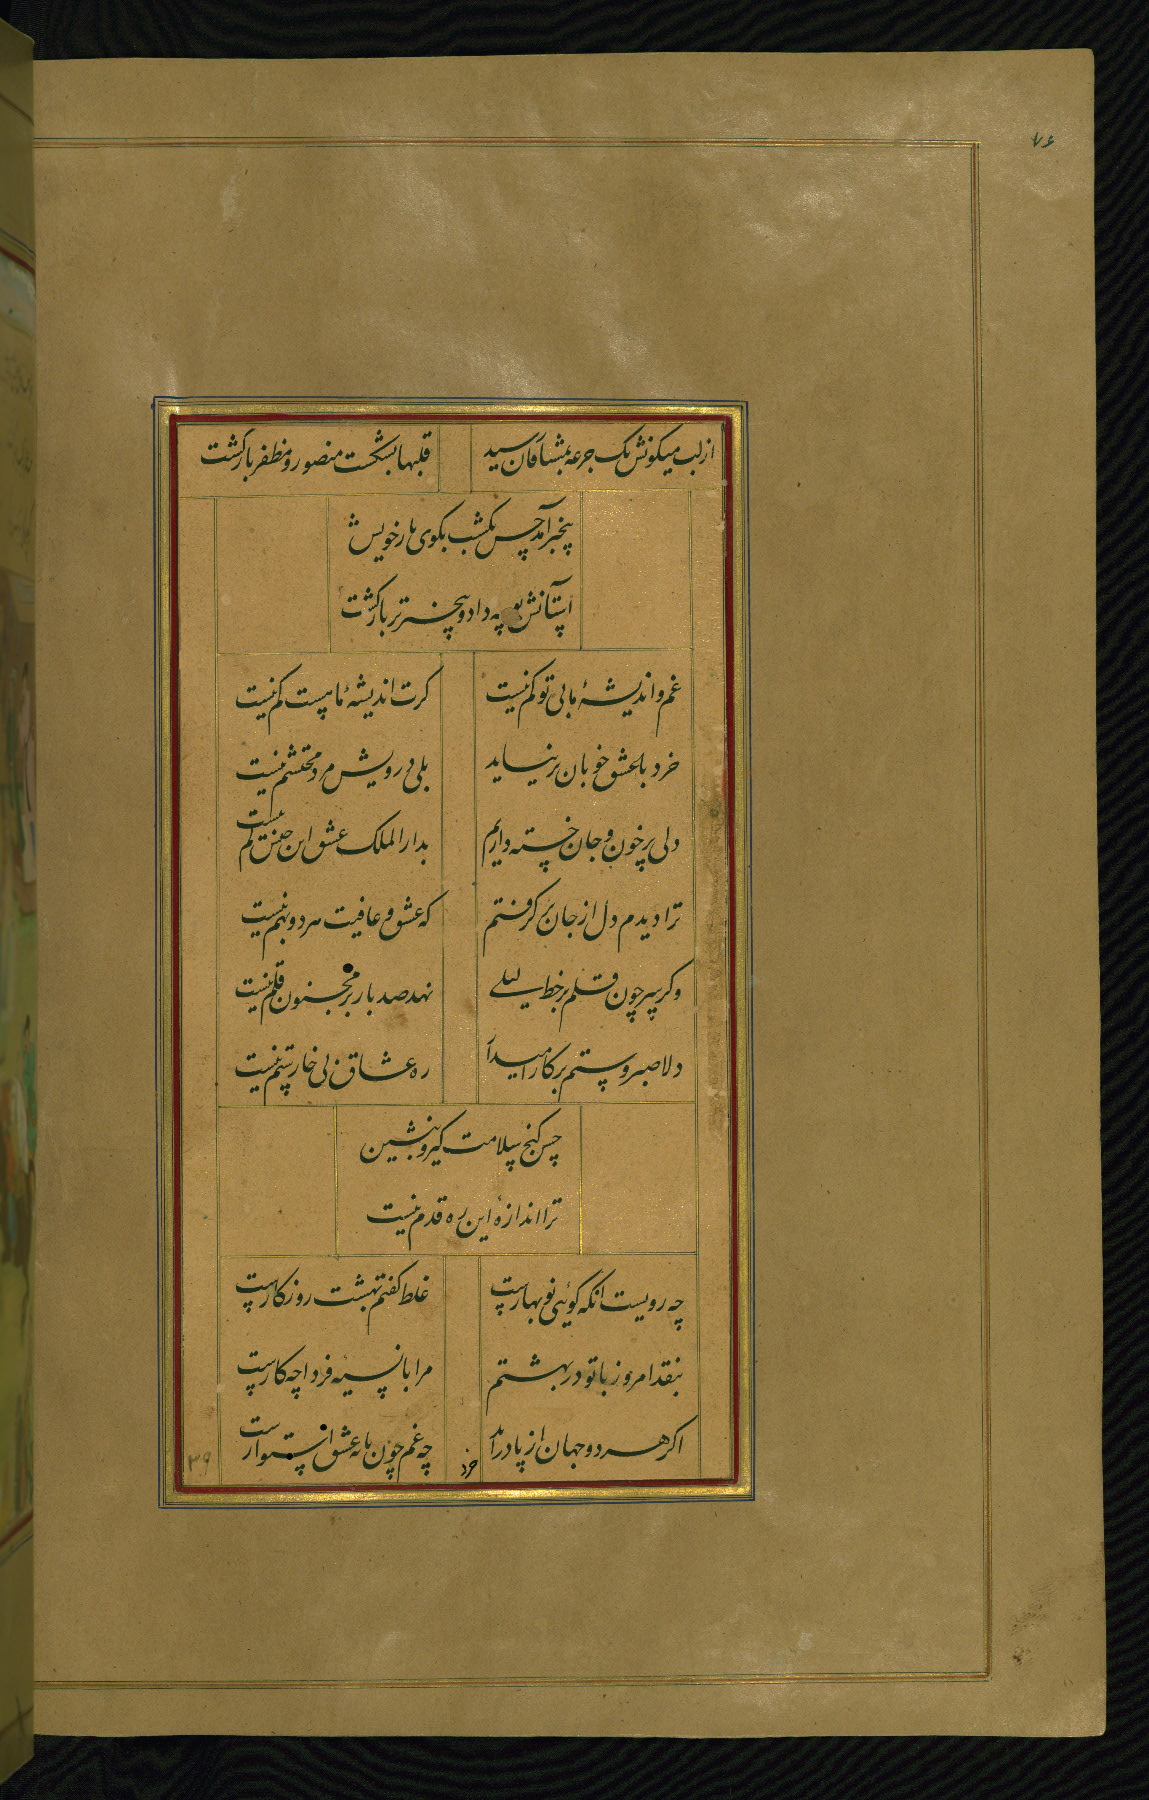 ۷۶
از لب میکونش یک جرعه بمشتاقان رسید قلبها بشکست منصور و مظفر بازکشت
بیخبر آمد حسن یکشب بکوی یار خویش
آستانش بوسه داد و بیخبرتر بازکشت
غم و اندیشهٔ ما بی تو کم نیست کرت اندیشهٔ ما هست کم نیست
خرد با عشق خوبان بر نیاید بلی درویش مرد محتشم نیست
دلی پر خون و جان خسته داریم بدار الملک عشق این جنس کم نیست
ترا دیدم دل از جان بر کرفتم که عشق و عافیت هر دو بهم نیست
وکر سر چون قلم بر خط لیلی نهد صد بار بر مجنون قلم نیست
دلا صبر و ستم بر کار میدار ره عشاق بی خار ستم نیست
حسن کنج سلامت کیر و بنشین
ترا اندازهٔ این ره قدم نیست
چه رویست آنکه کوئی نوبهارست غلط کفتم بهشت روزکارست
بنقد امروز با تو در بهشتم مرا با نسیهٔ فردا چه کارست
اکر هر دو جهان از پا در آمد چه غم چون پایهٔ عشق استوارست
خرد
۳۹